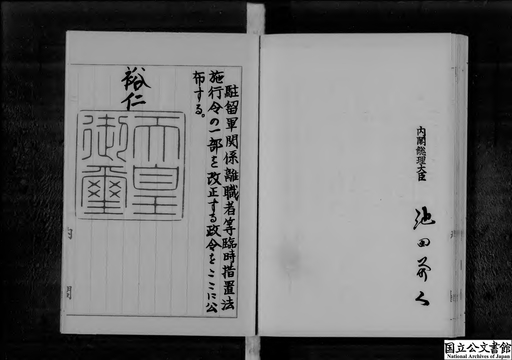 駐留軍関係離職者等臨時措置法
施行令の一部を改正する政令をここに公
布する。
裕仁
天皇
御璽
内閣総理大臣
池田勇人
国立公文書館
National Archives of Japan